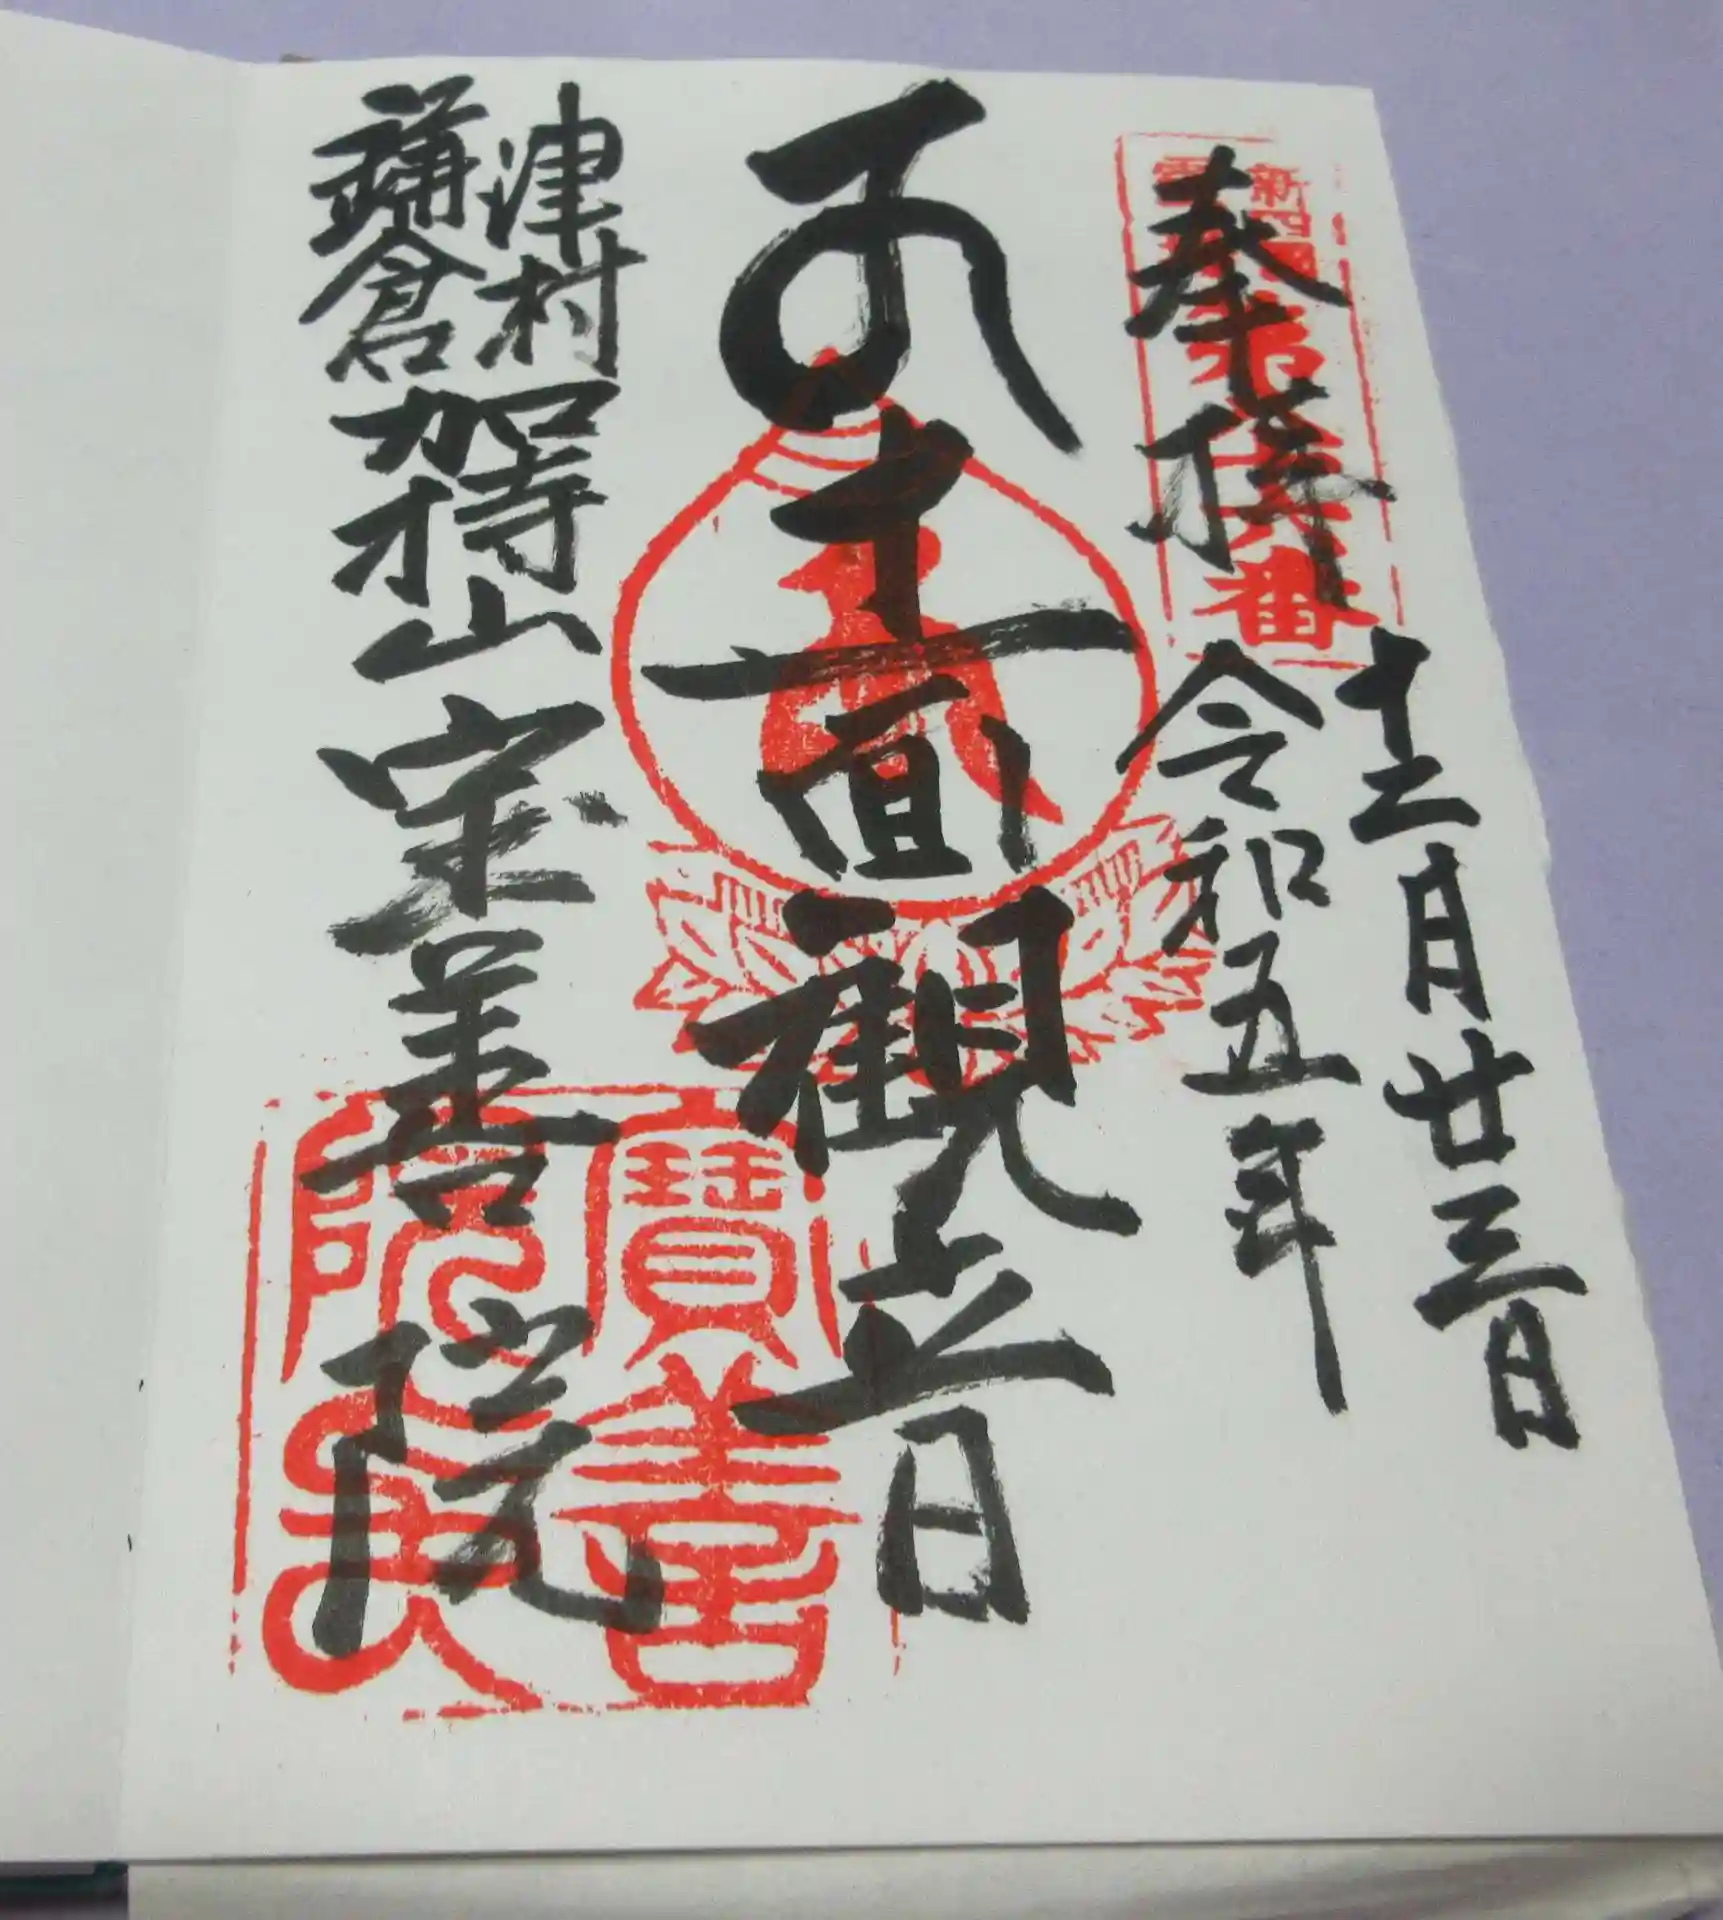 奉拝
令和五年
十二月廿三日
十一面観音
津村
鎌倉
加持山 宝善院
新四国
番
寶善院